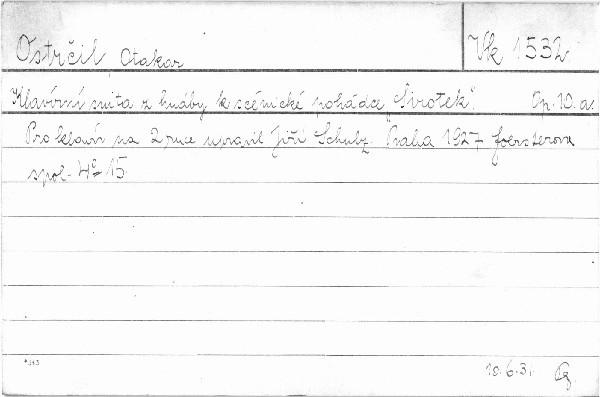 Ostrčil Otakar Vk 1532
Klavírní suita z hudby k scénické pohádce "Sirotek". Op. 10. a.
Pro klavír na 2 ruce upravil Jiří Schulz. Praha 1927 Foersterova
spol. 4° 15.
10.6.31